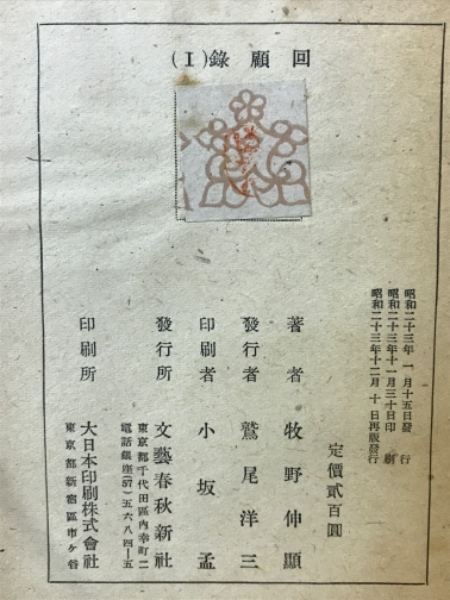 回顧錄(I)
昭和二十三年一月十五日發行
昭和二十三年十一月三十日印刷
昭和二十三年十二月十日再版發行
定價貳百圓
著者 牧野伸顯
發行者 鷲尾洋三
印刷者 小坂孟
發行所 文藝春秋新社
東京都千代田區內幸町二
電話銀座(57)五六八四—五
印刷所 大日本印刷株式會社
東京都新宿區市ケ谷